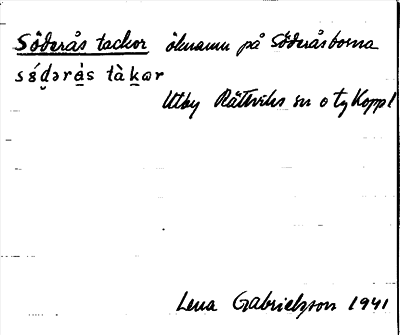 Söderås tackor öknamn på Söderåsborna
sǿdərås tàkar
Utby Rättviks sn o tg Koppl
Lena Gabrielsson 1941